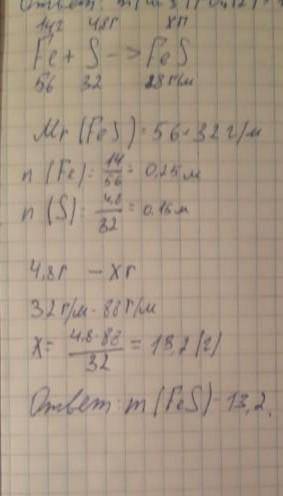 14г 4,8г xг
Fe + S -> FeS
56 32 88 г/м
Mr (FeS) = 56+32 г/м
n (Fe) = 14/56 = 0,25 м
n (S) = 4,8/32 = 0,15 м
4,8г - xг
32 г/м - 88 г/м
x = 4,8·88/32 = 13,2 (г)
Ответ: m (FeS) - 13,2.